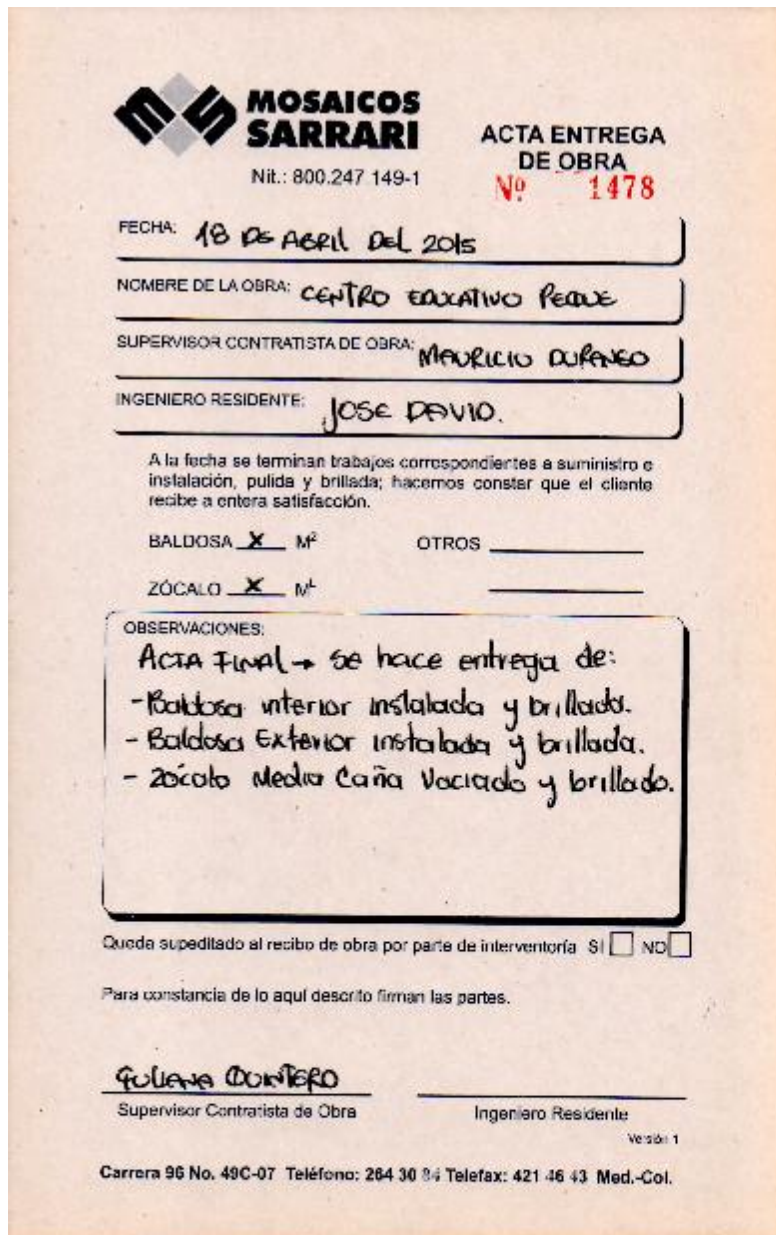 MS
MOSAICOS
SARRARI
Nit.: 800.247 149-1
ACTA ENTREGA
DE OBRA
Nº 1478
FECHA: 18 DE ABRIL DEL 2015
NOMBRE DE LA OBRA: CENTRO EDUCATIVO PEQUE
SUPERVISOR CONTRATISTA DE OBRA: MAURICIO DURANGO
INGENIERO RESIDENTE: JOSE DAVID.
A la fecha se terminan trabajos correspondientes a suministro e
instalación, pulida y brillada; hacemos constar que el cliente
recibe a entera satisfacción.
BALDOSA X M² OTROS
ZÓCALO X ML
OBSERVACIONES:
ACTA FINAL → se hace entrega de:
- Baldosa interior instalada y brillada.
- Baldosa Exterior instalada y brillada.
- Zócalo Media Caña Vaciado y brillado.
Queda supeditado al recibo de obra por parte de interventoría SI NO
Para constancia de lo aquí descrito firman las partes.
QUINTERO
Supervisor Contratista de Obra Ingeniero Residente
Versión 1
Carrera 96 No. 49C-07 Teléfono: 264 30 84 Telefax: 421 46 43 Med.-Col.